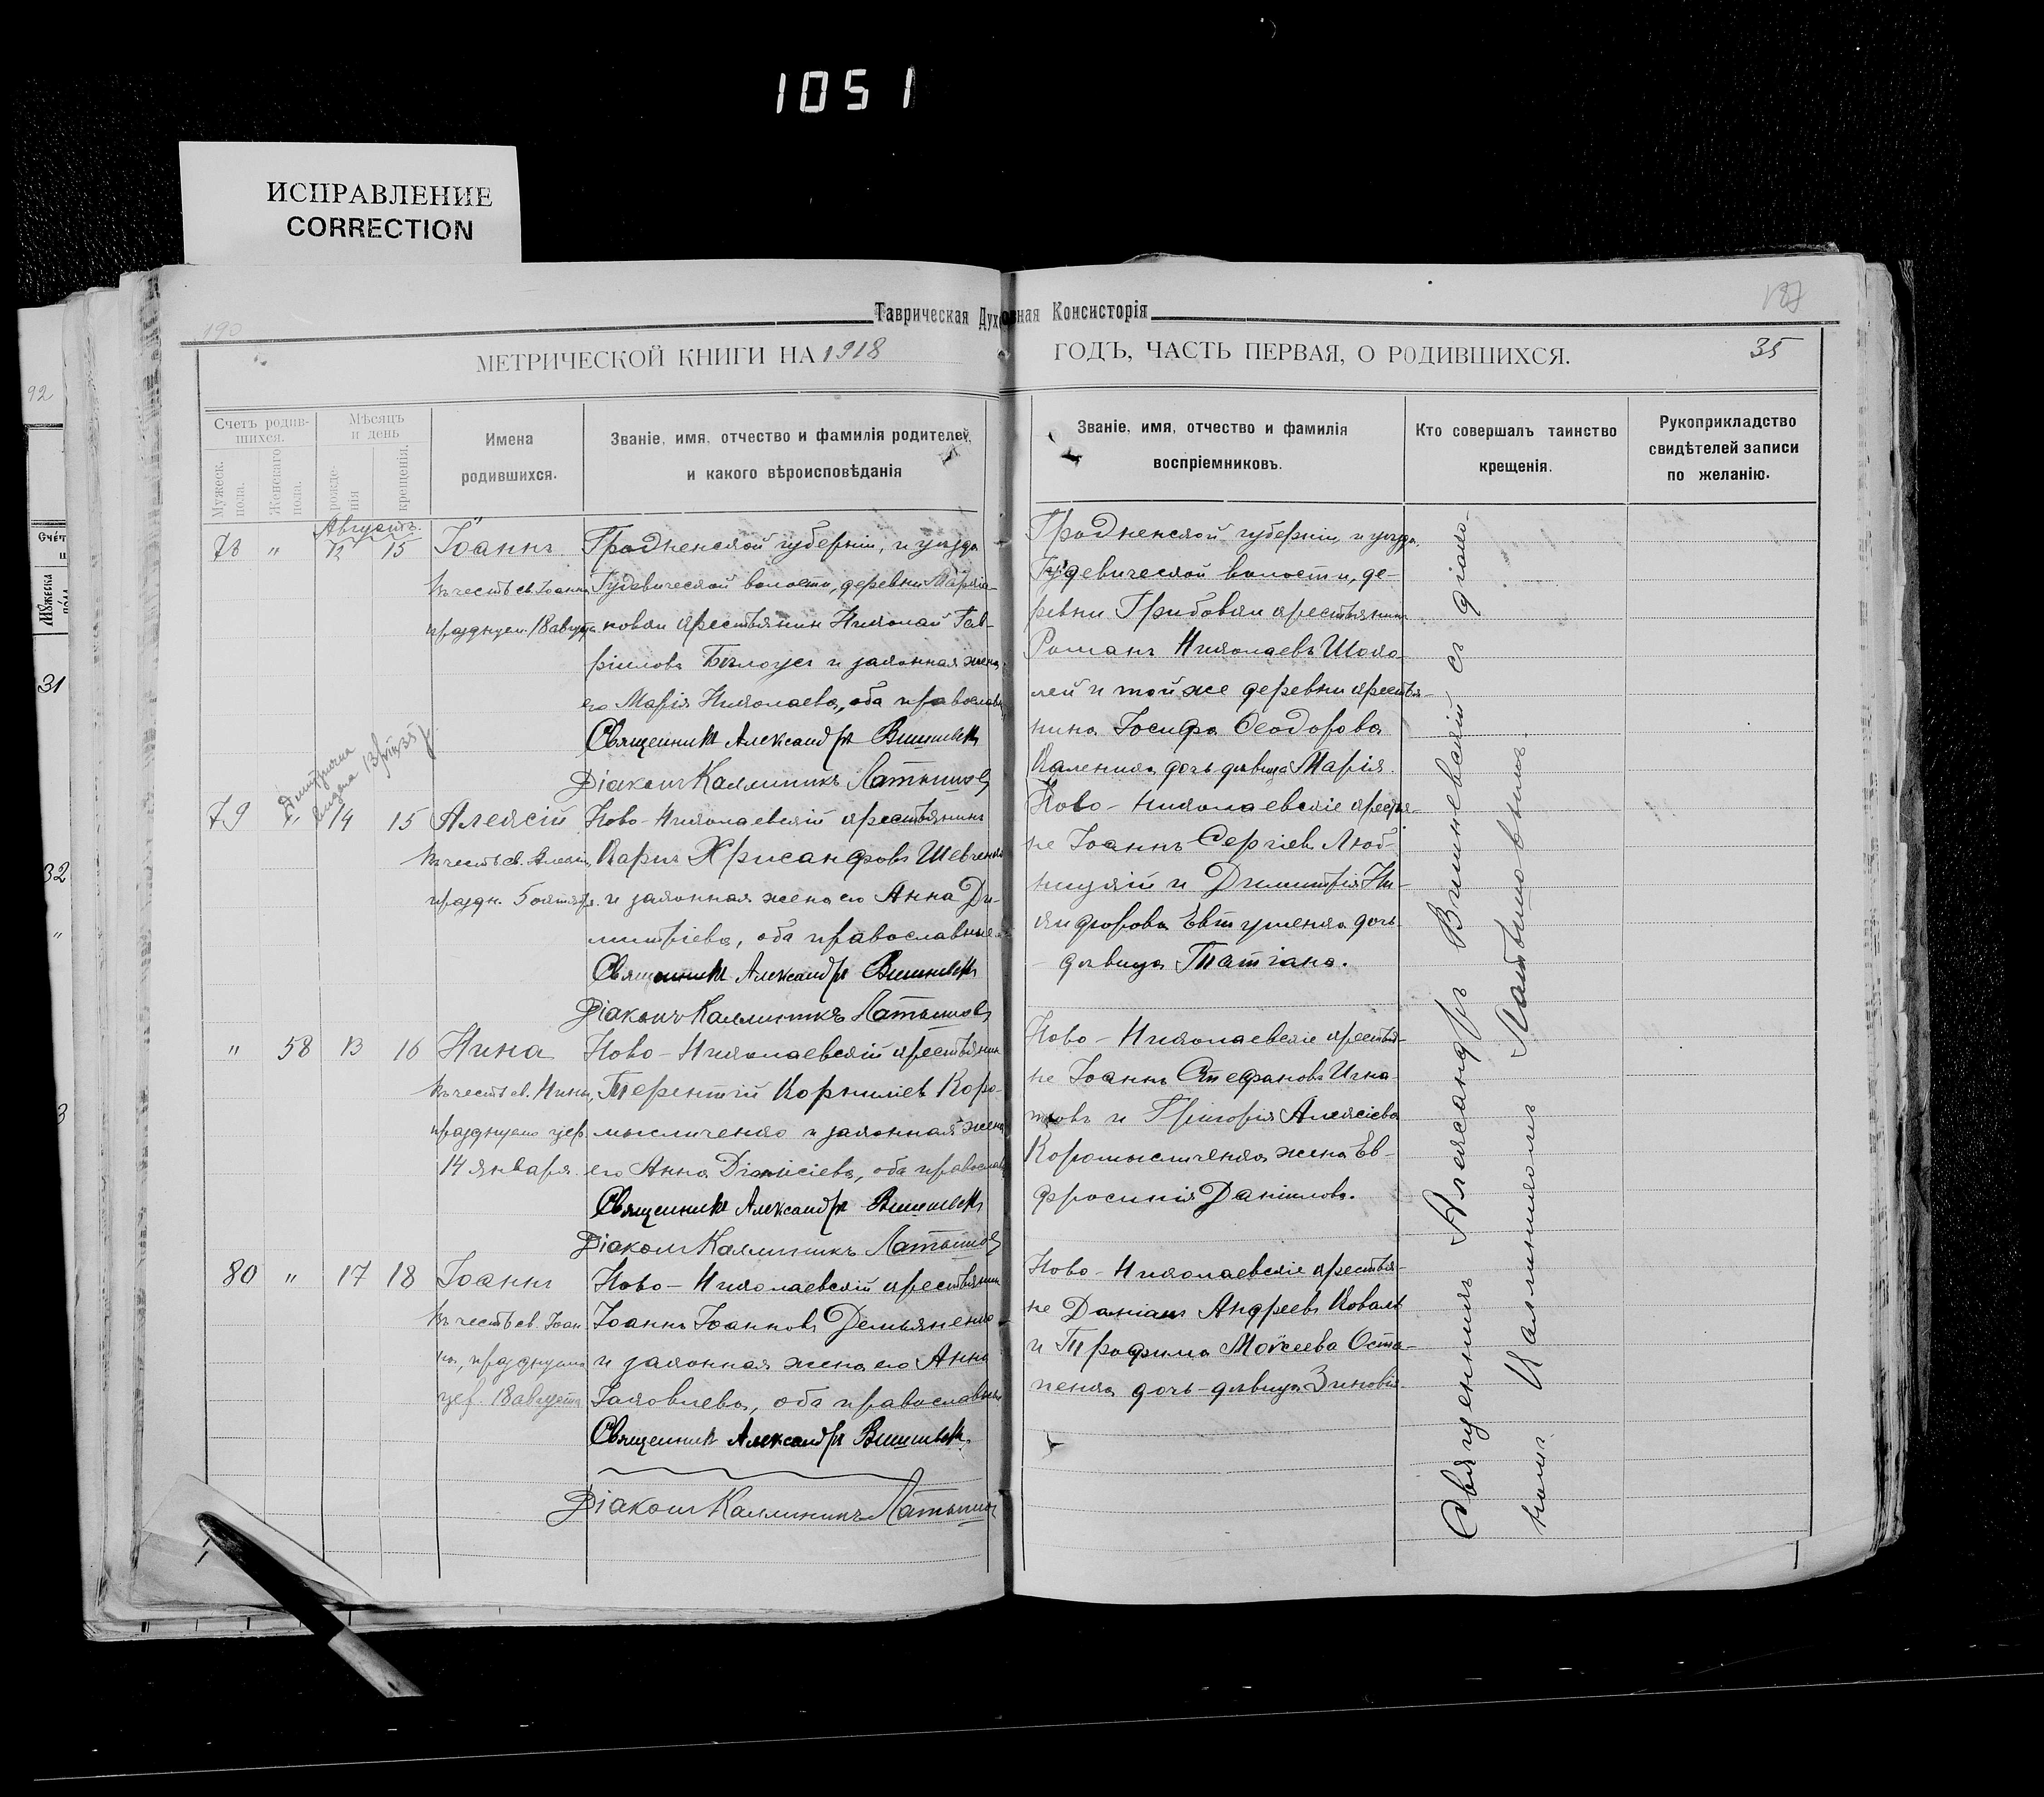 1051
ИСПРАВЛЕНИЕ
CORRECTION
Таврическая Духовная Консисторія
190
МЕТРИЧЕСКОЙ КНИГИ НА 1918
ГОДЪ, ЧАСТЬ ПЕРВАЯ, О РОДИВШИХСЯ.
35
92
Счетъ родив-
шихся.
Мужеск.
пола.
Женскаго
пола.
Мѣсяцъ
и день
рожде-
нія
крещенія.
Имена
родившихся.
Званіе, имя, отчество и фамилія родителей,
и какого вѣроисповѣданія
Званіе, имя, отчество и фамилія
воспріемниковъ.
Кто совершалъ таинство
крещенія.
Рукоприкладство
свидѣтелей записи
по желанію.
31
32
3
Августъ.
78 " 15 Іоаннъ
въ честь св. Іоанна
празднуем. 18 августа
Гродненской губерніи, и уѣзда
Гудевической волости, деревни
крестьянин Николай Гав-
ріиловъ Бѣлоусъ и законная жена
его Марія Николаева, оба православн.
Священникъ Александръ Вишневск
Діаконъ Каллиникъ Латышов
Гродненской губерніи и уѣзда
Гудевической волости, де-
ревни Грибовки крестьянинъ
Романъ Николаевъ Шоло-
лей и той же деревни крестья-
нина Іосифа Ѳеодорова
дочь дѣвица Марія.
79 " 14 15 Алексій
въ честь св. Алексія,
праздн. 5 октября.
Ново-Николаевскій крестьянинъ
Карпъ Хрисанфовъ Шевченко
и законная жена его Анна Ди-
митріева, оба православные.
Священникъ Александръ Вишневск
Діаконъ Каллиникъ Латышов
Ново-Николаевскіе крестья-
не Іоаннъ Сергіевъ Люб-
ницкій и Димитрія Ни-
кифорова Евтушенка дочь
- дѣвица Татіана.
" 58 13 16 Нина
въ честь св. Нины,
празднуемо цер.
14 января.
Ново-Николаевскій крестьянин
Терентій Корниліевъ Коро-
мысличенко и законная жена
его Анна Діонисіева, оба православ
Священникъ Александръ Вишневск
Діаконъ Каллиникъ Латышов
Ново-Николаевскіе крестья-
не Іоаннъ Стефановъ Игна-
товъ и Григорія Алексіева
Коромысличенка жена Ев-
фросинія Даніилова.
80 " 17 18 Іоаннъ
въ честь св. Іоан-
на, празднуемо
цер. 18 августа
Ново-Николаевскій крестьянин
Іоаннъ Іоанновъ Демьяненко
и законная жена его Анна
Іаковлева, оба православные
Священникъ Александръ Вишневск
Діаконъ Каллиникъ Латышов
Ново-Николаевскіе крестья-
не Даніилъ Андреевъ Коваль
и Трофима Моѵсеева Оста-
пенка дочь-дѣвица Зиновія.
Священникъ Александръ Вишневскій съ діако-
номъ Каллиникомъ Латышовымъ.